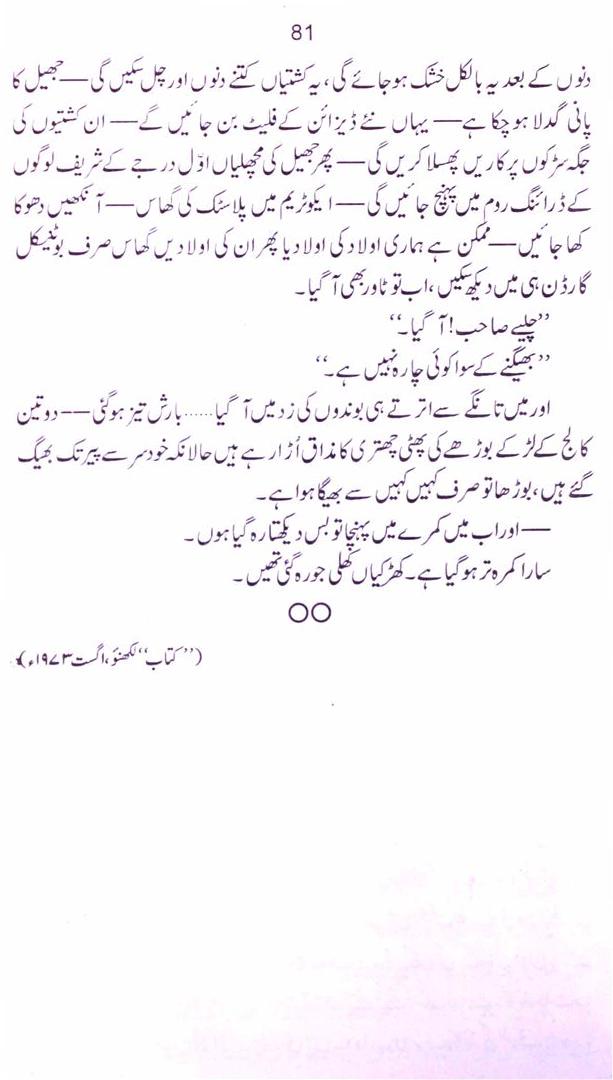 81
دنوں کے بعد یہ بالکل خشک ہو جائے گی، یہ کشتیاں کتنے دنوں اور چل سکیں گی — جھیل کا
پانی گدلا ہو چکا ہے — یہاں نئے ڈیزائن کے فلیٹ بن جائیں گے — ان کشتیوں کی
جگہ سڑکوں پر کاریں پھسلا کریں گی — پھر جھیل کی مچھلیاں اوّل درجے کے شریف لوگوں
کے ڈرائنگ روم میں پہنچ جائیں گی — ایکوئریم میں پلاسٹک کی گھاس — آنکھیں دھوکا
کھا جائیں — ممکن ہے ہماری اولاد کی اولاد یا پھر ان کی اولادیں گھاس صرف بوٹنیکل
گارڈن ہی میں دیکھ سکیں، اب تو ٹاور بھی آ گیا۔
”چلیے صاحب! آ گیا۔“
”بھیگنے کے سوا کوئی چارہ نہیں ہے۔“
اور میں تانگے سے اترتے ہی بوندوں کی زد میں آ گیا...... بارش تیز ہو گئی —— دو تین
کالج کے لڑکے بوڑھے کی پھٹی چھتری کا مذاق اُڑا رہے ہیں حالانکہ خود سر سے پیر تک بھیگ
گئے ہیں، بوڑھا تو صرف کہیں کہیں سے بھیگا ہوا ہے۔
— اور اب میں کمرے میں پہنچا تو بس دیکھتا رہ گیا ہوں۔
سارا کمرہ تر ہو گیا ہے۔ کھڑکیاں کھلی جو رہ گئی تھیں۔
○○
(”کتاب“ لکھنؤ، اگست ۱۹۷۳ء)